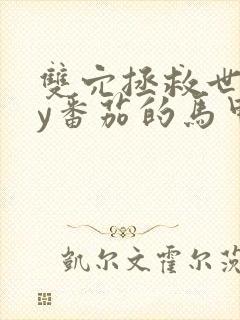 雙穴拯救世
y番茄的馬甲
凱尔文霍尔茨